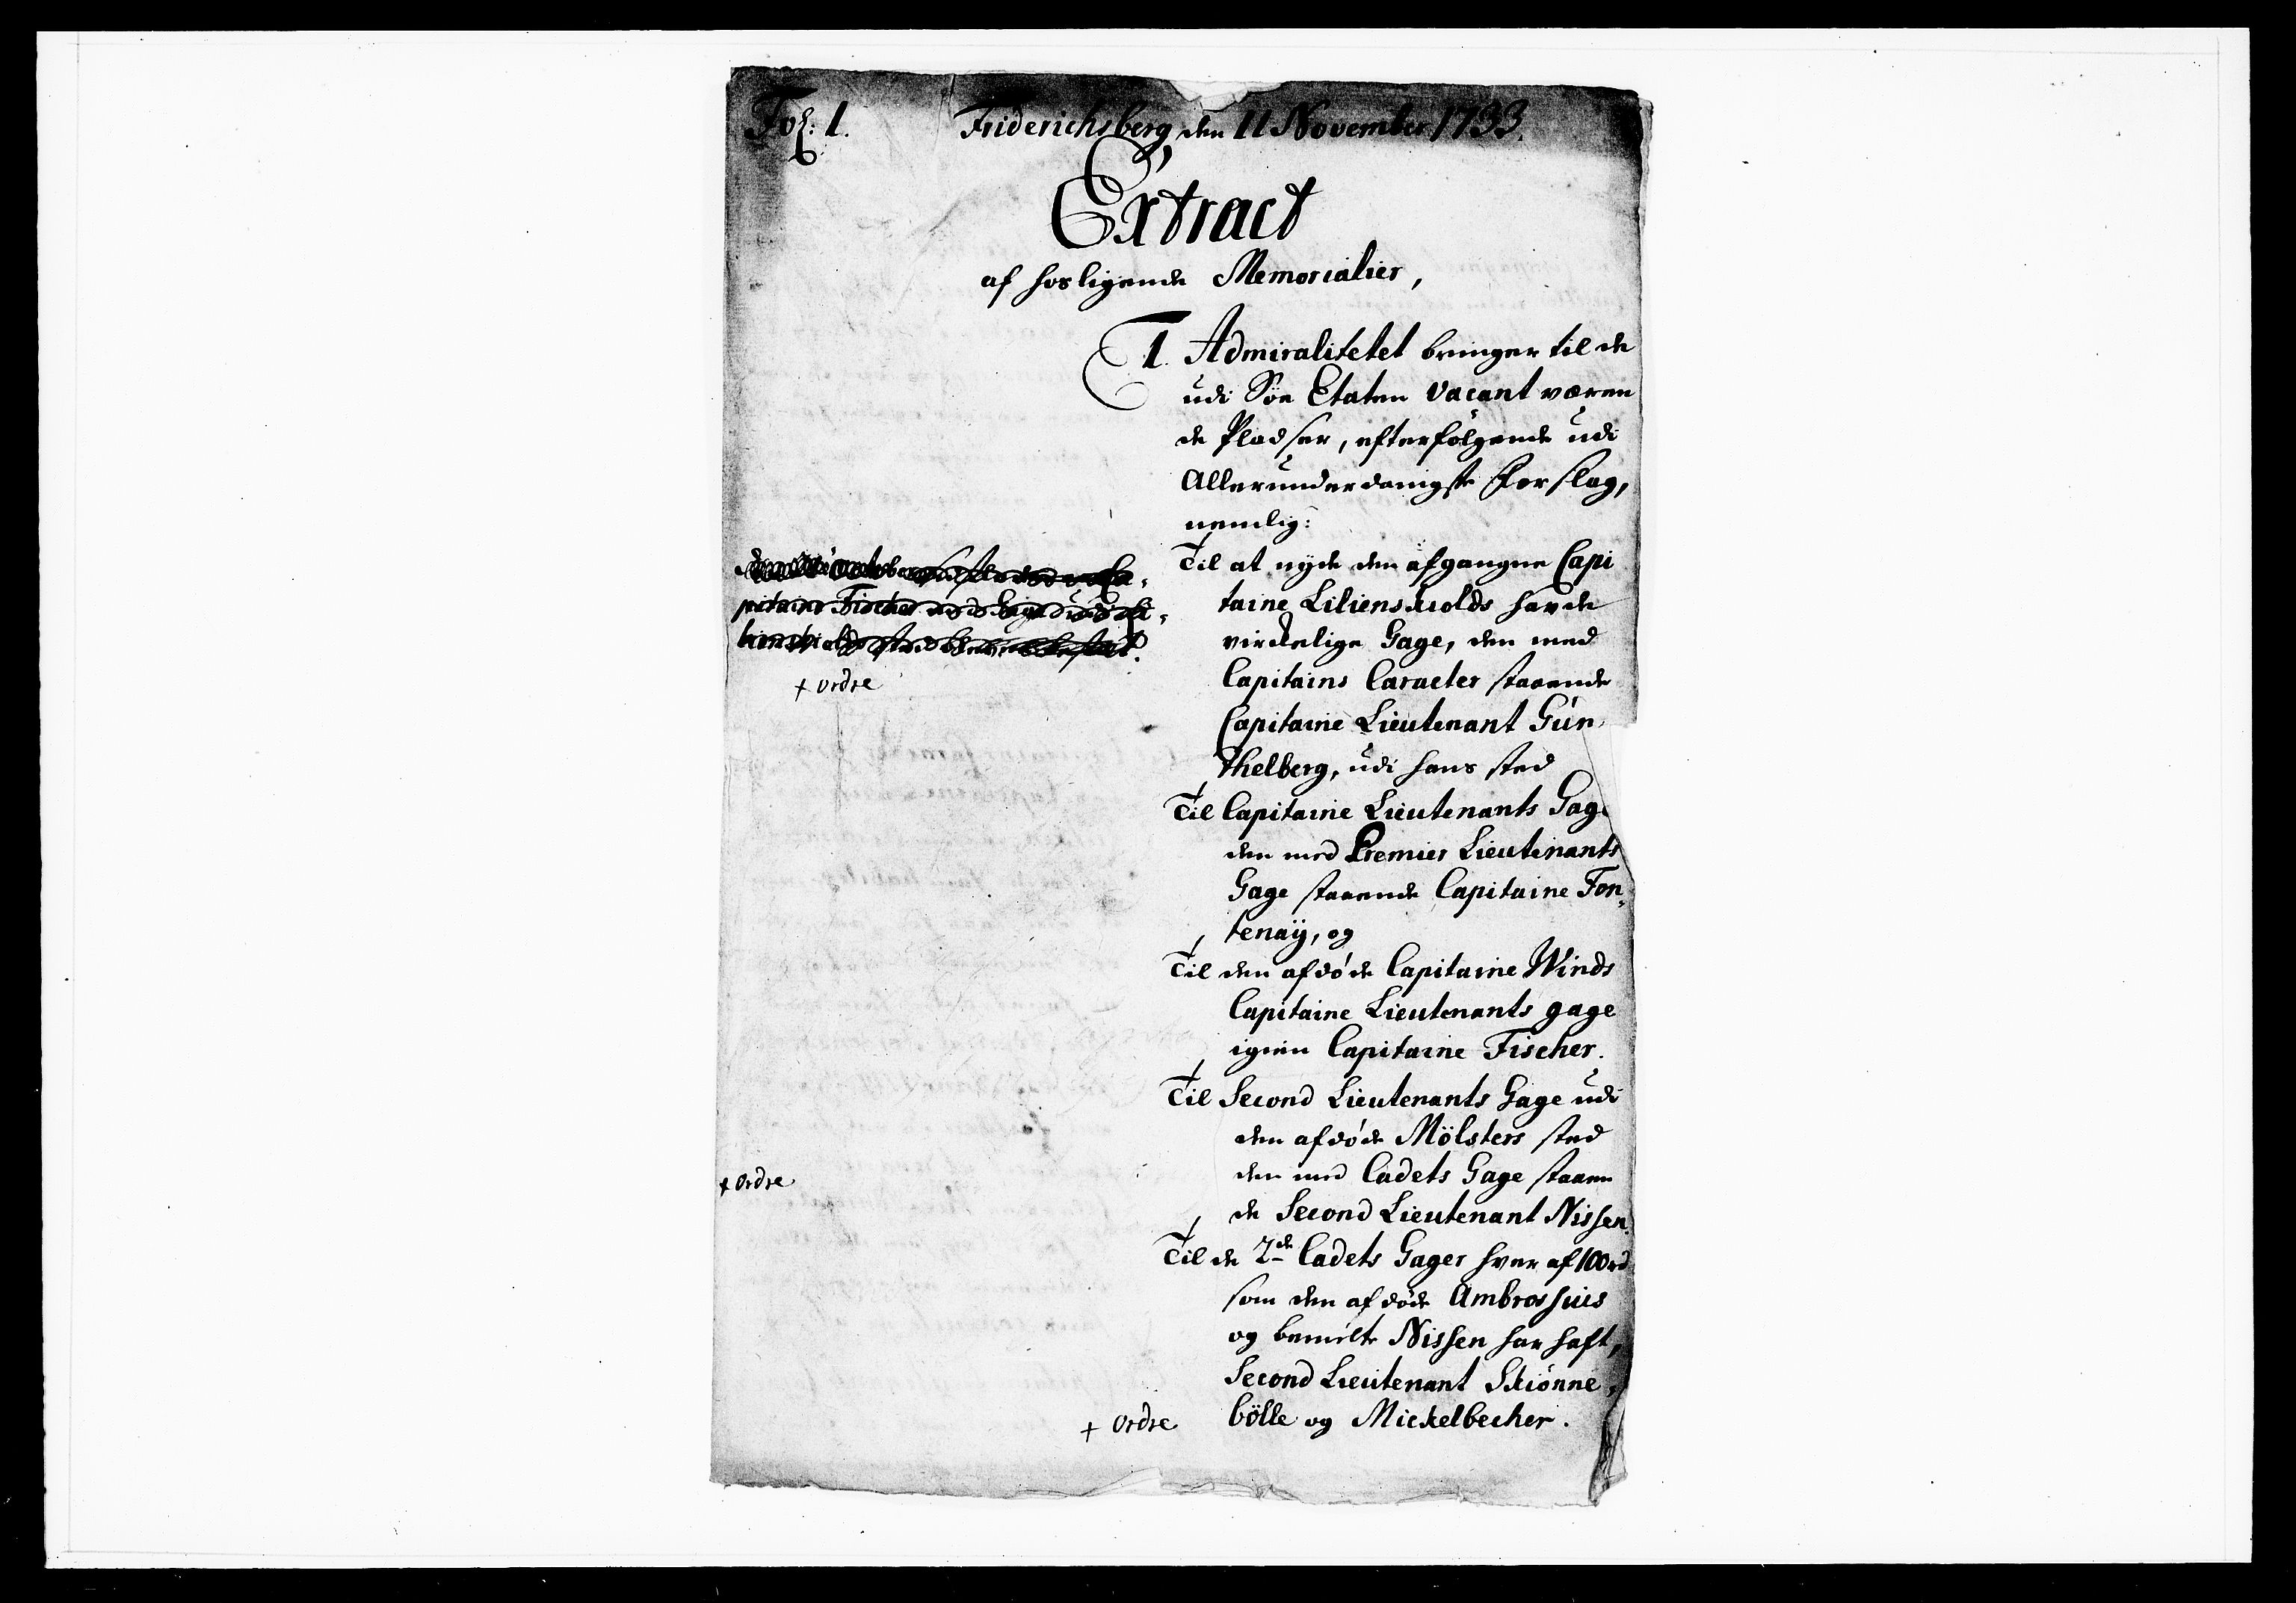 Fol: 1.
Friderichsberg den 11 November 1733.
Extract
af hosligende Memorialier,
1. Admiralitetet bringer til de
udi Söe Etaten vacant væren
de Pladser, efterfölgende udi
Allerunderdanigste Forslag,
nemlig:
Til at nyde den afgangne Capi
taine Lilienskiolds havde
virkelige Gage, den med
Capitains Caracter staaende
Capitaine Lieutenant Gün-
thelberg, udi hans sted
pitaine Fischer
+ ordre
Til Capitaine Lieutenants Gage
den med Premier Lieutenants
Gage staaende Capitaine Fon-
tenaÿ, og
Til den afdöde Capitaine Winds
Capitaine Lieutenants gage
igien Capitaine Fischer.
Til Second Lieutenants Gage udi
den afdöde Mölsters sted
den med Cadets Gage staaen
de Second Lieutenant Nissen.
+ ordre
Til de 2de Cadets Gager hver af 100 rd
som den afdöde Ambrossius
og bemelte Nissen har haft,
Second Lieutenant Skiönne-
bölle og Mickelbecher.
+ ordre